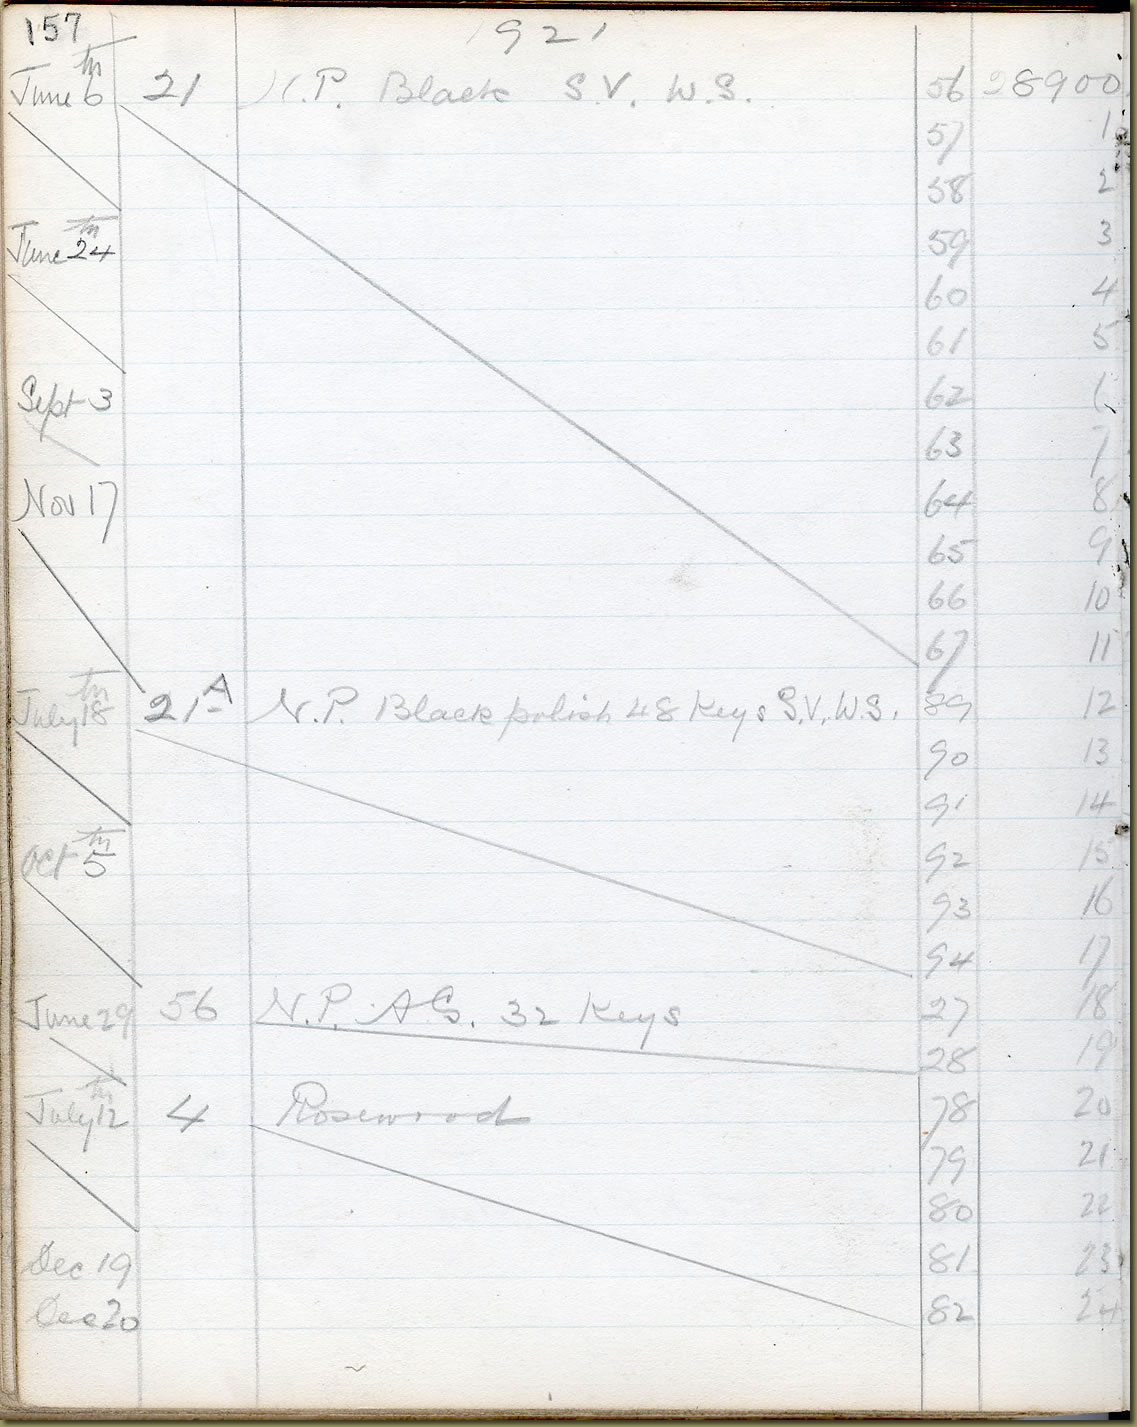 157
1921
June 6th 21 N.P. Black S.V. W.S. 56 28900
57 1
58 2
June 24th 59 3
60 4
61 5
Sept 3 62 6
63 7
Nov 17 64 8
65 9
66 10
67 11
July 18th 21A N.P. Black polish 48 Keys S.V. W.S. 89 12
90 13
91 14
Oct 5th 92 15
93 16
94 17
June 29 56 N.P. A G. 32 Keys 27 18
28 19
July 12th 4 Rosewood 78 20
79 21
80 22
Dec 19 81 23
Dec 20 82 24